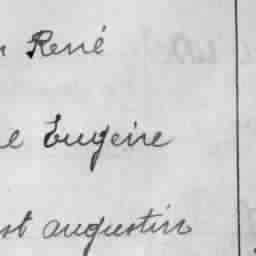 René
Eugène
st augustin